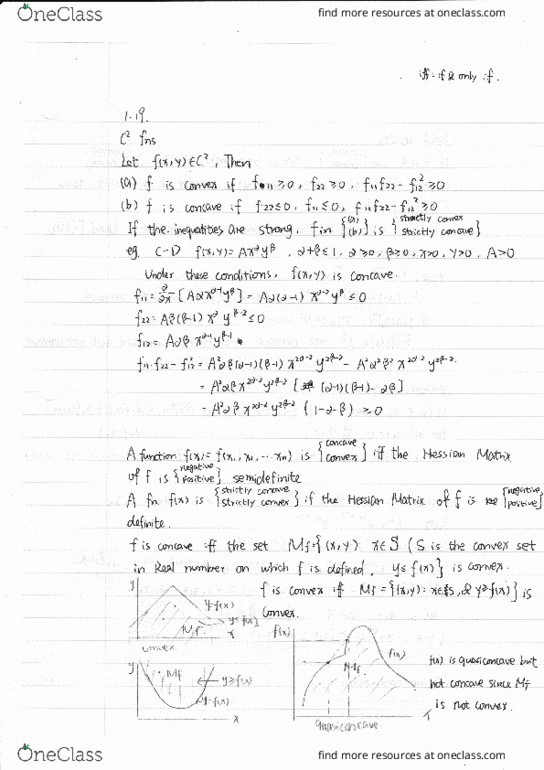 OneClass
find more resources at oneclass.com
iff = if & only if.
1.19.
C² fns
Let f(x,y)∈C², Then
(a) f is convex if f₁₁≥0, f₂₂≥0, f₁₁f₂₂-f₁₂²≥0
(b) f is concave if f₂₂≤0, f₁₁≤0, f₁₁f₂₂-f₁₂²≥0
If the inequalities are strong, f in {(a) (b)} is {strictly convex strictly concave}
eg. (-1) f(x,y)=Ax^α y^β, α+β≤1, α≥0, β≥0, x>0, y>0, A>0
Under these conditions, f(x,y) is concave.
f₁₁ = ∂/∂x [Aαx^(α-1)y^β] = Aα(α-1) x^(α-2) y^β ≤0
f₂₂ = Aβ(β-1)x^α y^(β-2) ≤0
f₁₂ = Aαβ x^(α-1) y^(β-1)
f₁₁f₂₂-f₁₂² = A²αβ(α-1)(β-1) x^(2α-2) y^(2β-2) - A²α²β² x^(2α-2) y^(2β-2).
= A²αβ x^(2α-2) y^(2β-2) [(α-1)(β-1)-αβ]
= A²αβ x^(2α-2) y^(2β-2) (1-α-β) ≥0
A function f(x)=f(x₁,x₂,...xn) is {concave convex} iff the Hessian Matrix
of f is {negative positive} semidefinite
A fn f(x) is {strictly concave strictly convex} if the Hessian Matrix of f is {negative positive}
definite.
f is concave iff the set Mf={(x,y) x∈S (S is the convex set
in Real number on which f is defined, y≤f(x)} is convex.
f is convex if Mf={(x,y): x∈S, & y≥f(x)} is
convex.
y
y=f(x)
y≤f(x)
Mf
x
convex
y
Mf
y≥f(x)
y=f(x)
x
f(x)
Mf
f(x)
x
quasiconcave
f(x) is quasiconcave but
not concave since Mf
is not convex.
OneClass
find more resources at oneclass.com